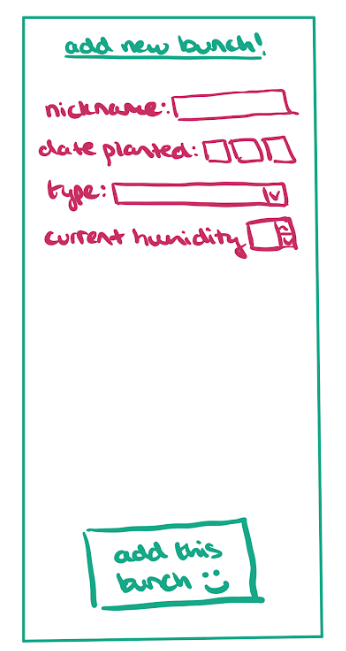 add new bunch!
nickname:
date planted:
type:
current humidity
add this
bunch :)